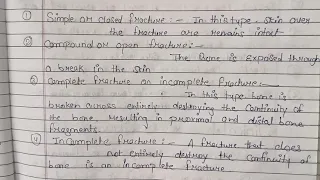 ① Simple or closed fracture :- In this type, skin over
the fracture are remains intact
② Compound or open fracture :-
The Bone is exposed through
a break in the skin
③ Complete fracture or incomplete fracture :-
In this type bone is
broken across entirely destroying the continuity of
the bone, resulting in proximal and distal bone
fragments.
④ Incomplete fracture :- A fracture that does
not entirely destroy the continuity of
bone is an incomplete fracture